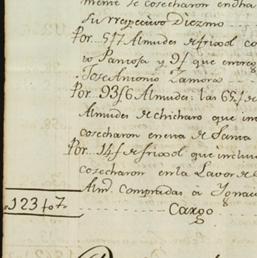 mente se cosecharon en dha
su rrespecivo Diezmo
Por 517 Almudes de frixol co
vo Pantoja y 9 f que entreg
Jose Antonio Zamora
Por 93 f 6 Almudes: las 65 f
Almudes de chicharo que in
cosecharon en eva de Sema
Por 14 f de frixol que inclu
cosecharon en la Lavor de
Alm. Compradas a Ygnac
123 f 07
Cargo